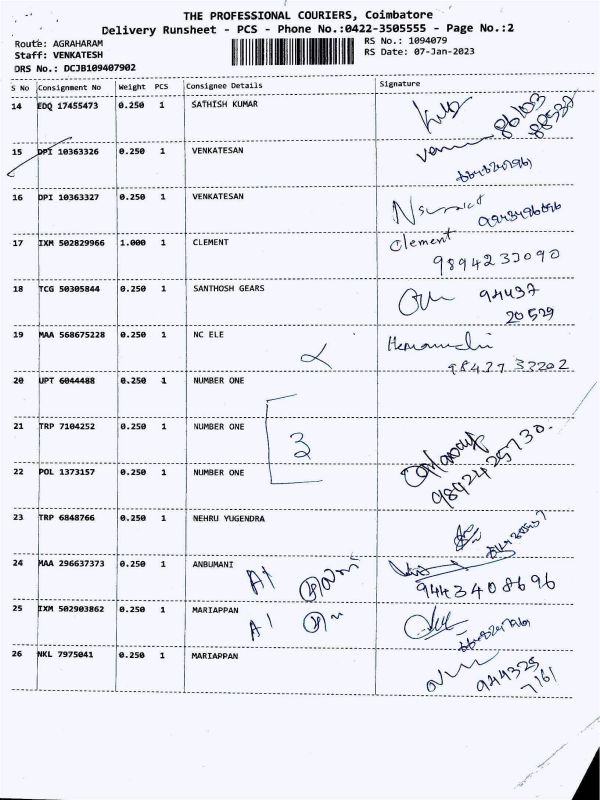 THE PROFESSIONAL COURIERS, Coimbatore
Delivery Runsheet - PCS - Phone No.:0422-3505555 - Page No.:2
Route: AGRAHARAM
Staff: VENKATESH
DRS No.: DCJB109407902
RS No.: 1094079
RS Date: 07-Jan-2023
S No Consignment No Weight PCS Consignee Details Signature
14 EDQ 17455473 0.250 1 SATHISH KUMAR
15 DPI 10363326 0.250 1 VENKATESAN
16 DPI 10363327 0.250 1 VENKATESAN
17 IXM 502829966 1.000 1 CLEMENT Clement
18 TCG 50305844 0.250 1 SANTHOSH GEARS 94437
20529
19 MAA 568675228 0.250 1 NC ELE
98427 33202
20 UPT 6044488 0.250 1 NUMBER ONE
21 TRP 7104252 0.250 1 NUMBER ONE
3
22 POL 1373157 0.250 1 NUMBER ONE 9842425730
23 TRP 6848766 0.250 1 NEHRU YUGENDRA
24 MAA 296637373 0.250 1 ANBUMANI
9443408696
25 IXM 502903862 0.250 1 MARIAPPAN
26 NKL 7975041 0.250 1 MARIAPPAN 944325
7161